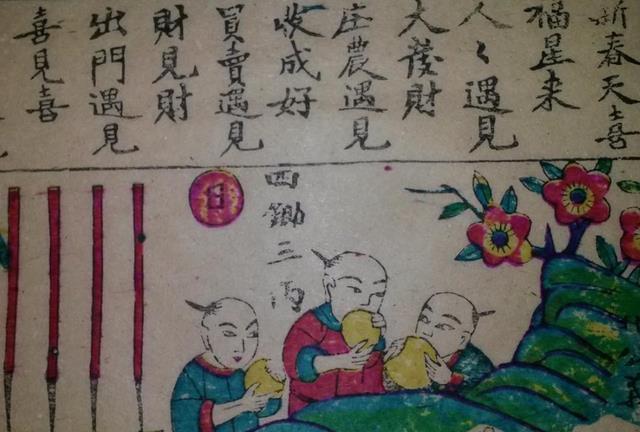 新春天喜
福星来
人〻遇見
大發財
庄農遇見
收成好
買賣遇見
財見財
出門遇見
喜見喜
鋤三
8